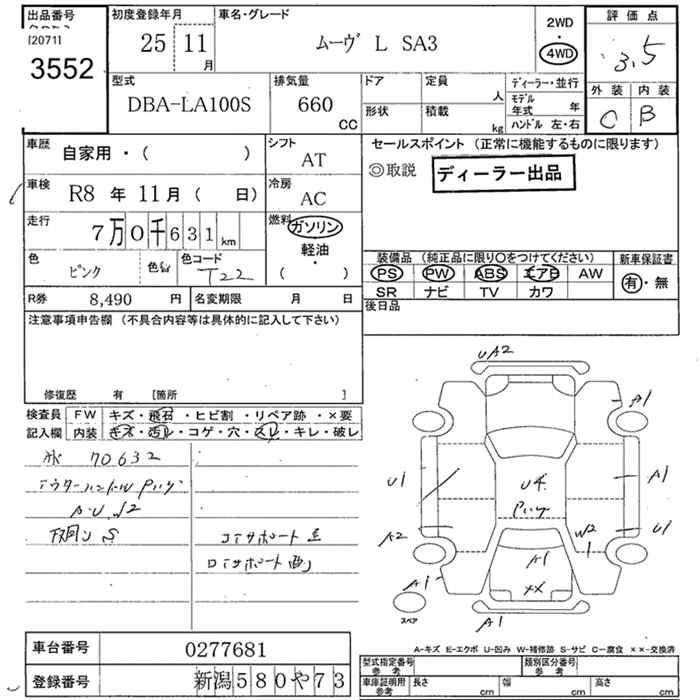 出品番号 初度登録年月 車名・グレード 2WD 評価点
[2071]
3552 25 11月 ムーヴ L SA3 4WD 3.5
型式 排気量 ドア 定員 人 ディーラー・並行 外装 内装
DBA-LA100S 660 CC 形状 積載 kg モデル年式 年 C B
ハンドル 左・右
車歴 自家用・( ) シフト AT セールスポイント (正常に機能するものに限ります)
◎取説 ディーラー出品
車検 R8年11月( 日) 冷房 AC
走行 7万0千631km 燃料 ガソリン
軽油・( )
色 ピンク 色替 色コード T22 装備品 (純正品に限り○をつけてください) 新車保証書
PS PW ABS エアB AW 有・無
SR ナビ TV カワ
R券 8,490円 名変期限 月 日 後日品
注意事項申告欄 (不具合内容等は具体的に記入して下さい)
修復歴 有 [箇所 ]
検査員 FW キズ・飛石・ヒビ割・リペア跡・×要
記入欄 内装 キズ・汚レ・コゲ・穴・スレ・キレ・破レ
70632
アウターハンドル
A・U W2
S
コアサポート
ロアサポート
UA2
A1
U1
A1
U4
A2
W2
U1
A1
A1
××
A1
スペア
A-キズ E-エクボ U-凹み W-補修跡 S-サビ C-腐食 ××-交換済
車台番号 0277681
登録番号 新潟580や73
型式指定番号 参考 類別区分番号 参考
車庫証明用 参考 長さ cm 幅 cm 高さ cm